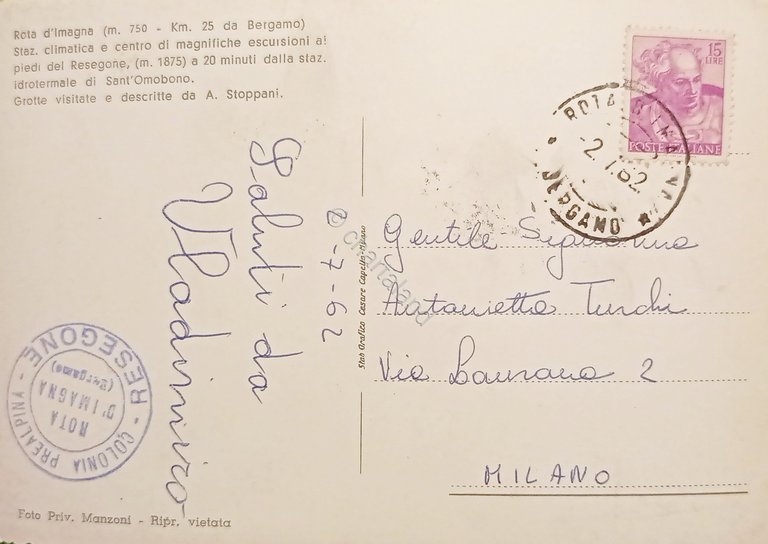 Rota d'Imagna (m. 750 - Km. 25 da Bergamo)
Staz. climatica e centro di magnifiche escursioni ai
piedi del Resegone, (m. 1875) a 20 minuti dalla staz.
idrotermale di Sant'Omobono.
Grotte visitate e descritte da A. Stoppani.
15
LIRE
POSTE ITALIANE
ROTA D'IMAGNA
-2.7.62
BERGAMO
Saluti da
Vladimiro
2-7-62
© chartaland
Stab Grafico Cesare Capello - Milano
Gentile Signorina
Antonietta Turchi
Via 2
MILANO
COLONIA PREALPINA - RESEGONE -
ROTA
D'IMAGNA
(Bergamo)
Foto Priv. Manzoni - Ripr. vietata